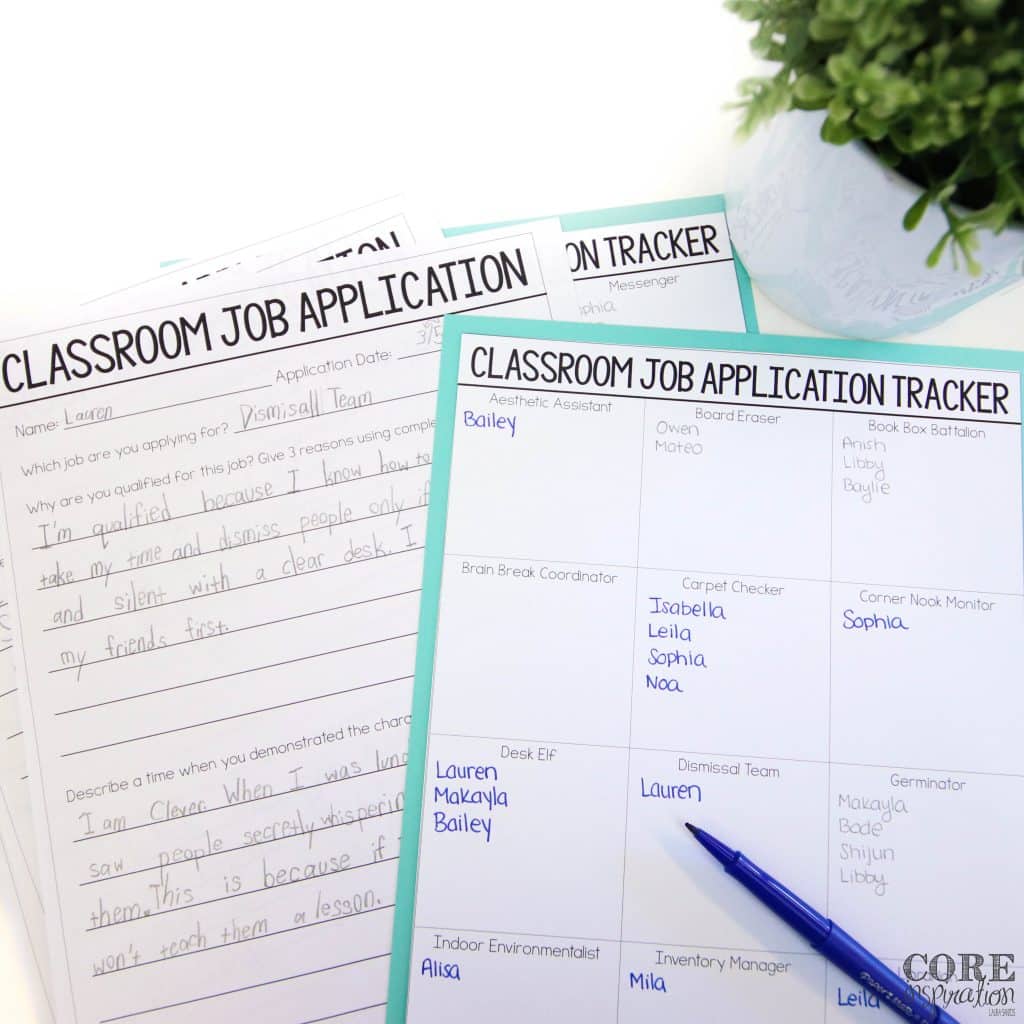 ION
ON TRACKER
Messenger
CLASSROOM JOB APPLICATION
Application Date: 3/5
Name: Lauren
Which job are you applying for? Dismisall Team
Why are you qualified for this job? Give 3 reasons using
I'm qualified because I know how to
take my time and dismiss people only if
and silent with a clear desk. I
my friends first.
Describe a time when you demonstrated the
I am Clever. When I was
saw people secretly whispering
them. This is because if
won't teach them a lesson.
CLASSROOM JOB APPLICATION TRACKER
Aesthetic Assistant
Bailey
Board Eraser
Owen
Mateo
Book Box Battalion
Anish
Libby
Baylie
Brain Break Coordinator
Carpet Checker
Isabella
Leila
Sophia
Noa
Corner Nook Monitor
Sophia
Desk Elf
Lauren
Makayla
Bailey
Dismissal Team
Lauren
Germinator
Makayla
Bode
Shijun
Libby
Indoor Environmentalist
Alisa
Inventory Manager
Mila
Leila
CORE
inspiration